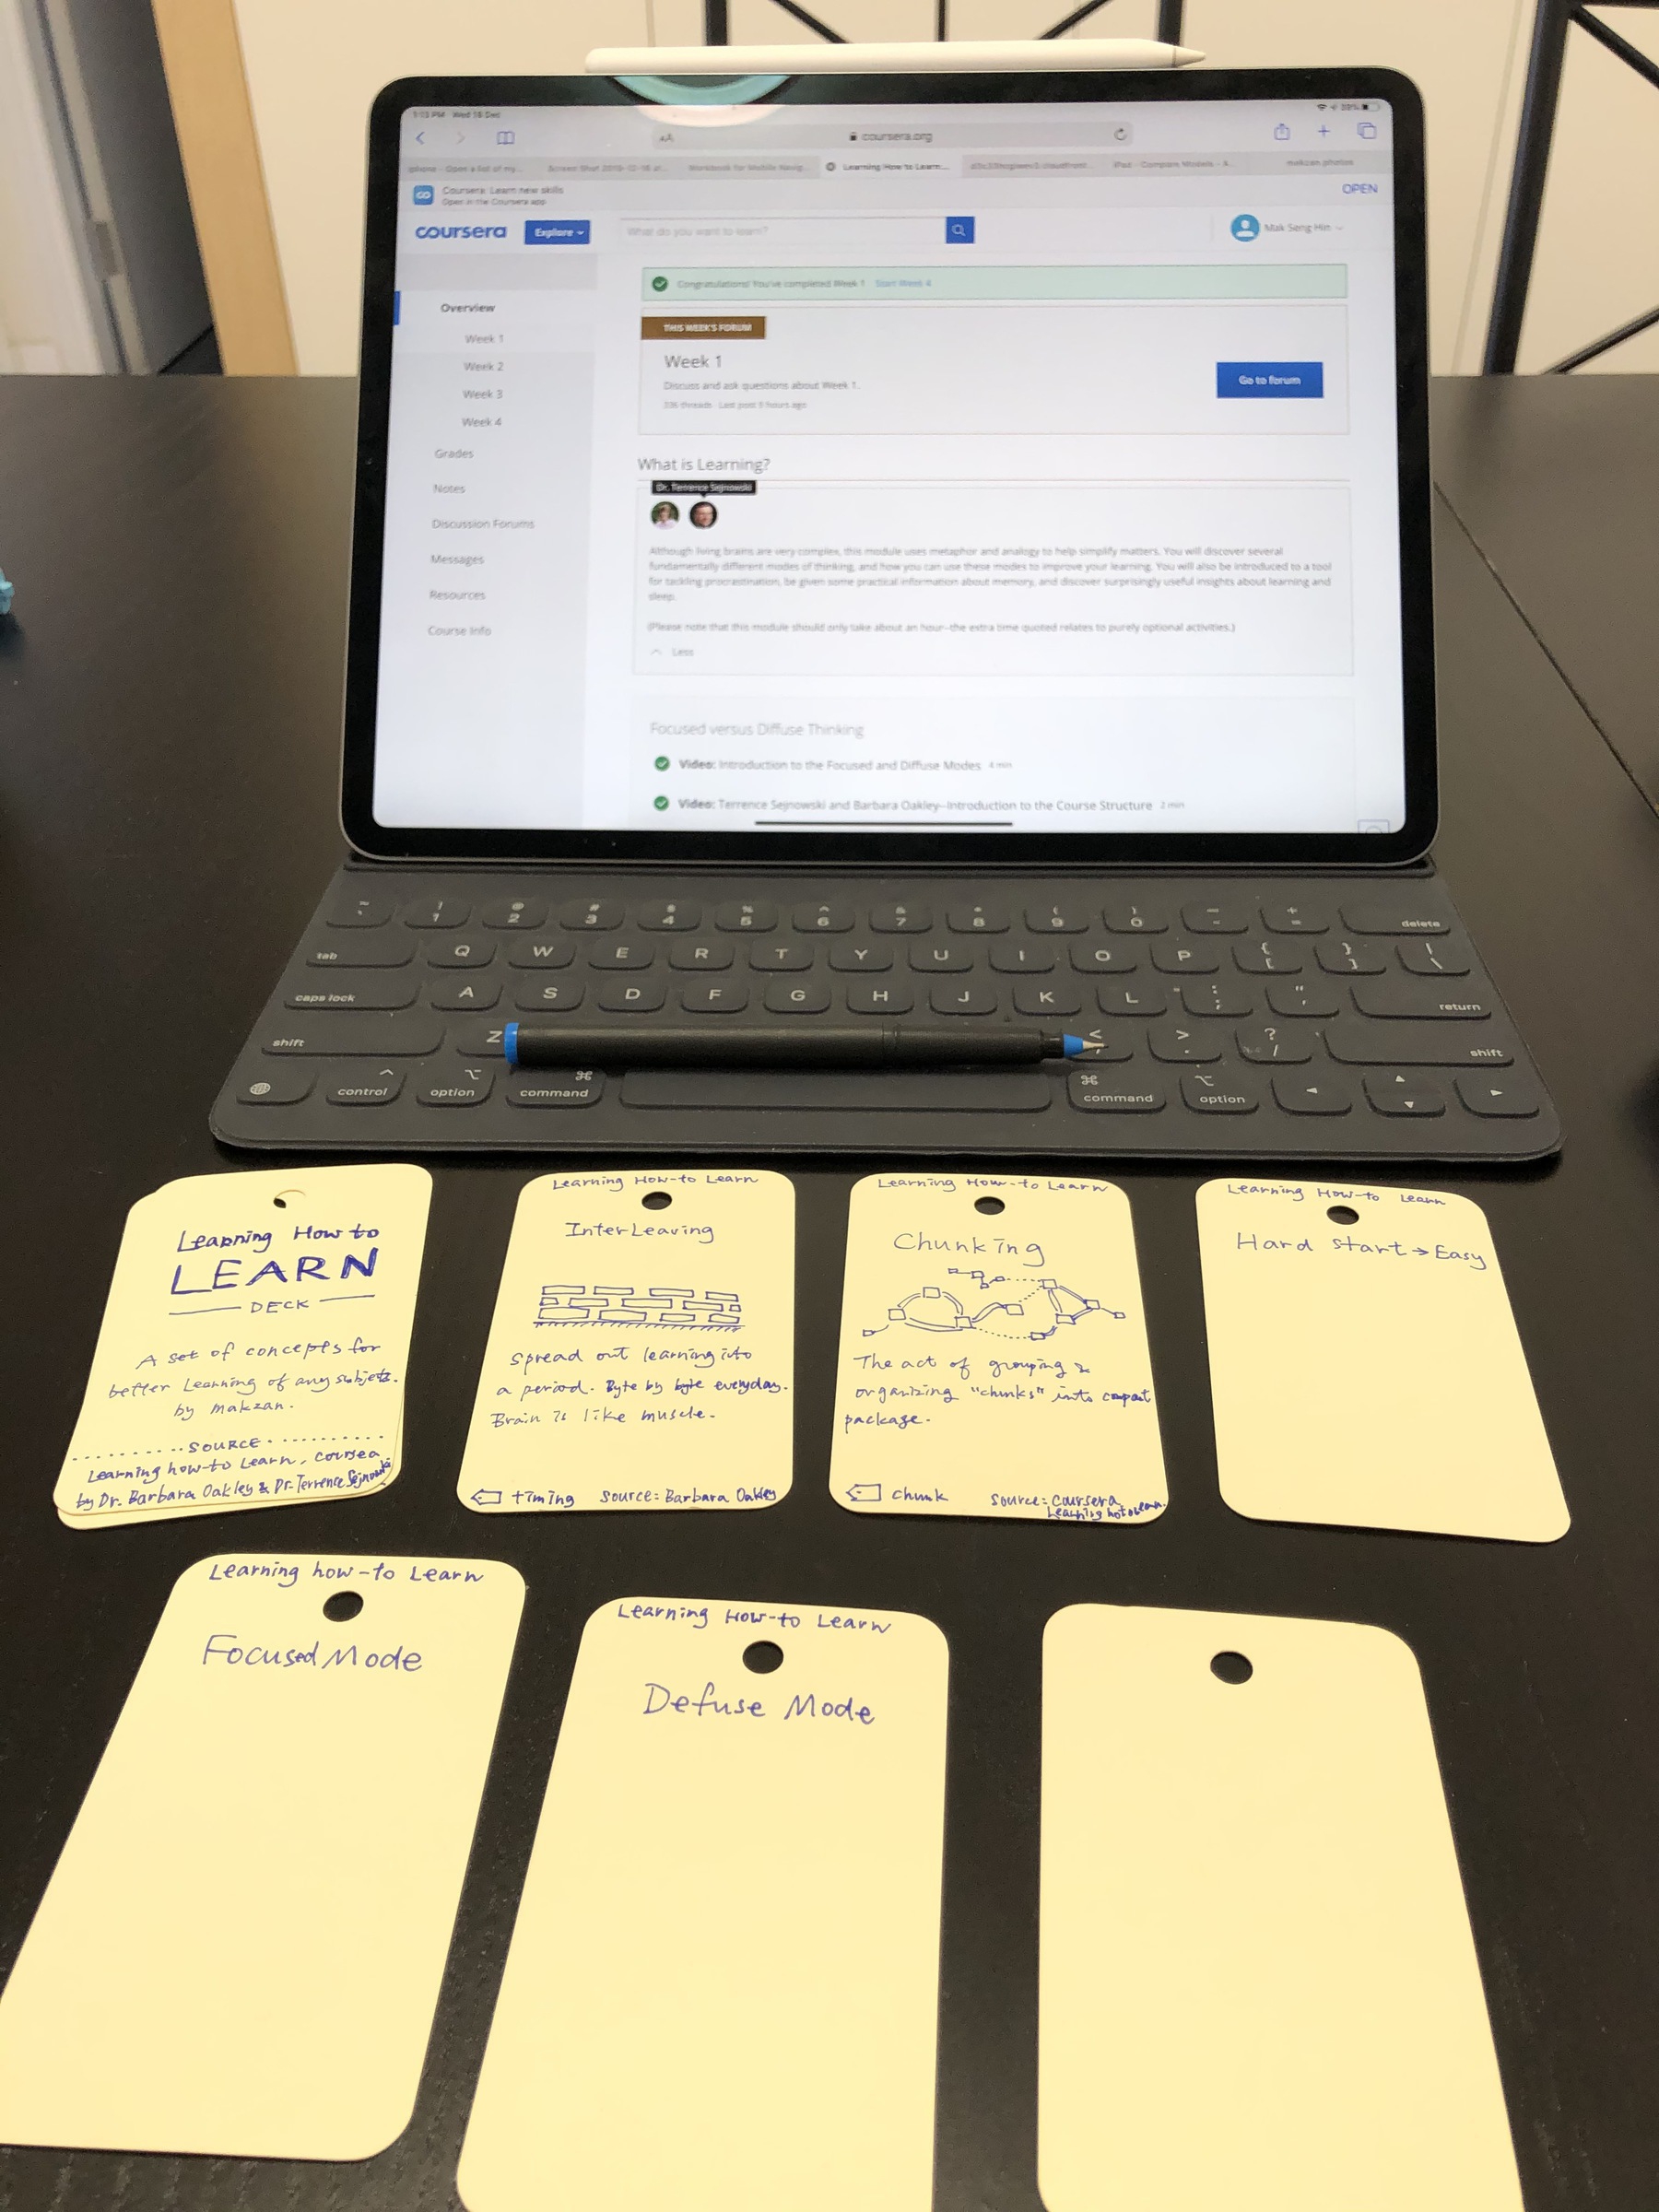 1:13 PM Wed 18 Dec
AA
coursera.org
Learning How to Learn...
makzan photos
Coursera: Learn new skills
Open in the Coursera app
OPEN
coursera
Explore
What do you want to learn?
Mak Seng Hin
Congratulations! You've completed Week 1 Start Week 4
Overview
Week 1
Week 2
Week 3
Week 4
Grades
Notes
Discussion Forums
Messages
Resources
Course Info
THIS WEEK'S FORUM
Week 1
Discuss and ask questions about Week 1.
threads · Last post hours ago
Go to forum
What is Learning?
Dr. Terrence Sejnowski
Although living brains are very complex, this module uses metaphor and analogy to help simplify matters. You will discover several
fundamentally different modes of thinking, and how you can use these modes to improve your learning. You will also be introduced to a tool
for tackling procrastination, be given some practical information about memory, and discover surprisingly useful insights about learning and
sleep.
(Please note that this module should only take about an hour--the extra time quoted relates to purely optional activities.)
Less
Focused versus Diffuse Thinking
Video: Introduction to the Focused and Diffuse Modes 4 min
Video: Terrence Sejnowski and Barbara Oakley--Introduction to the Course Structure 2 min
~ ! @ # $ % ^ & * ( ) _ +
` 1 2 3 4 5 6 7 8 9 0 - = delete
tab Q W E R T Y U I O P { [ } ] | \
caps lock A S D F G H J K L : ; " ' return
shift Z < , > . ? / shift
control option command command option
Learning How to
LEARN
DECK
A set of concepts for
better Learning of any subjects.
by makzan.
SOURCE
Learning how-to Learn, coursea
by Dr. Barbara Oakley & Dr. Terrence Sejnowski
Learning How-to Learn
InterLeaving
spread out learning into
a period. Byte by byte everyday.
Brain is like muscle.
timing source: Barbara Oakley
Learning How-to Learn
Chunking
The act of grouping &
organizing "chunks" into compact
package.
chunk source: coursera
Learning how to Learn.
Learning How-to Learn
Hard start → Easy
Learning how-to Learn
Focused Mode
Learning How-to Learn
Defuse Mode